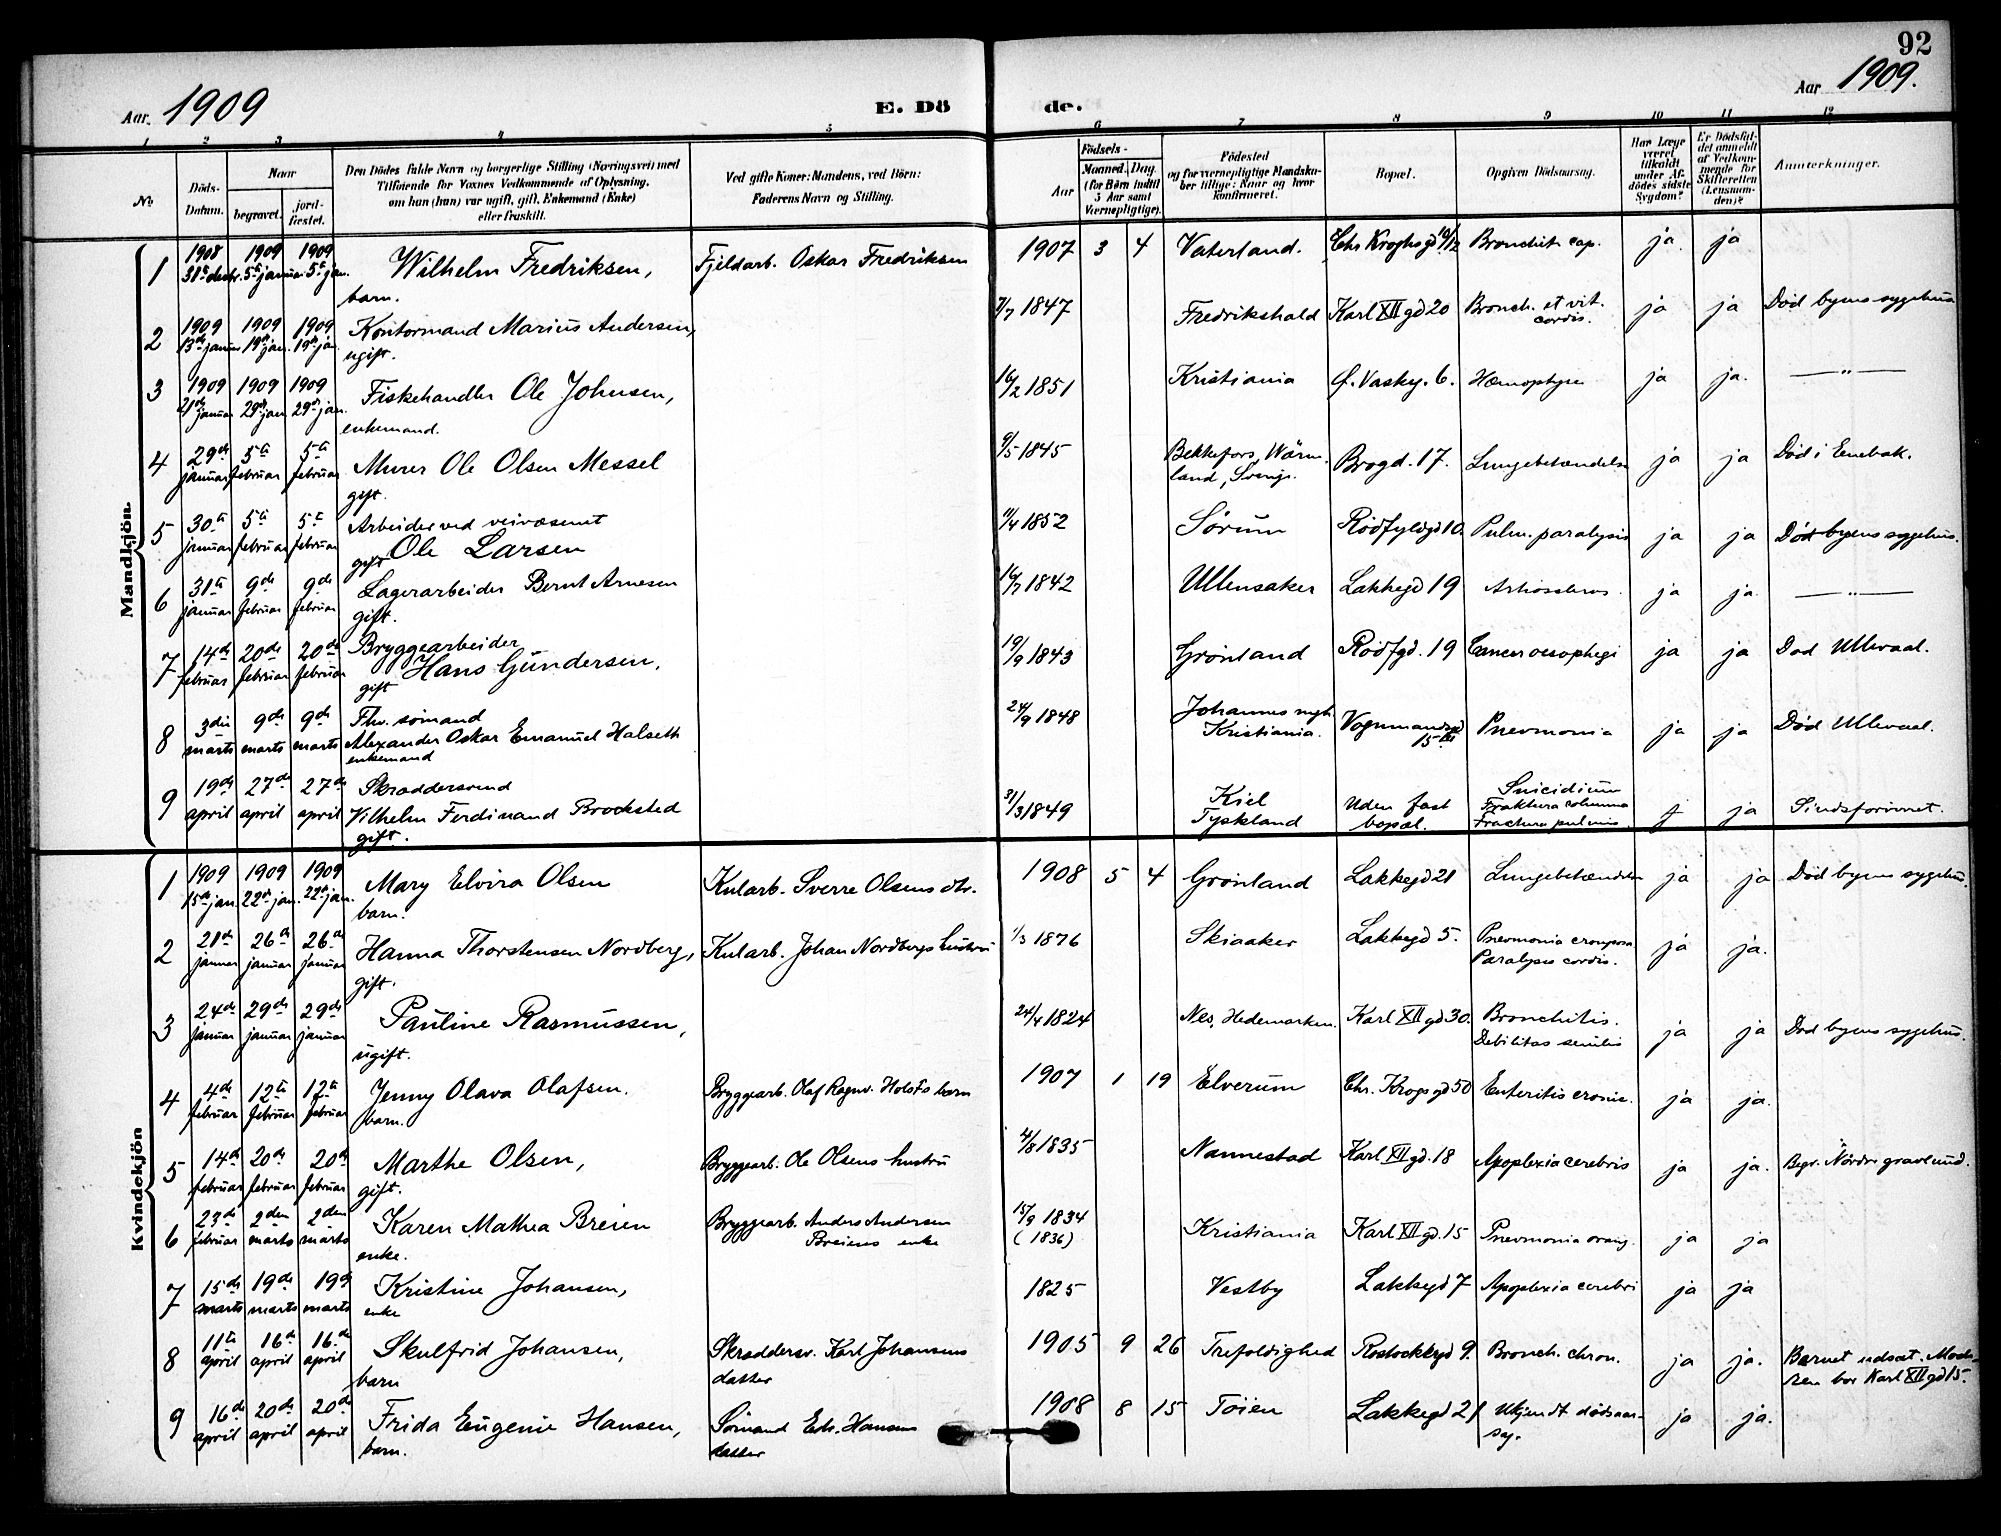 92
Aar. 1909
E. Dö de.
Aar 1909.
1 2 3 4 5 6 7 8 9 10 11 12
No
Döds-Datum.
Naar
begravet.
jord-fæstet.
Den Dödes fulde Navn og borgerlige Stilling (Næringsvei) med
Tilföiende for Voxnes Vedkommende af Oplysning,
om han (hun) var ugift, gift, Enkemand (Enke)
eller fraskilt.
Ved gifte Koner: Mandens, ved Börn:
Faderens Navn og Stilling.
Födsels-
Aar
Maaned. Dag.
(for Børn indtil
5 Aar samt
Værnepligtige).
Födested
og for værnepligtige Mandska-
ber tillige: Naar og hvor
konfirmeret.
Bopæl.
Opgiven Dödsaarsag.
Har Læge
været
tilkaldt
under Af-
dödes sidste
Sygdom?
Er Dödsfal-
det anmeldt
af Vedkom-
mende for
Skifteretten
(Lensman-
den)?
Anmerkninger.
Mandkjön.
1 1908 31te decbr. 1909 5te januar 1909 5te jan. Wilhelm Fredriksen, barn. Fjeldarb. Oskar Fredriksen 1907 3 4 Vaterland. Chr Kroghsgd 19/12 Bronchit. cap. ja ja
2 1909 13de januar 1909 19de jan. 1909 19de jan. Kontormand Marius Andersen, ugift. 7/7 1847 Fredrikshald Karl XII gd 20 Bronch. et vit. cordis. ja ja Död byens sygehus
3 1909 21de januar 1909 29de jan. 1909 29de jan. Fiskehandler Ole Johnsen, enkemand. 16/2 1851 Kristiania Ø. Vaskg. 6. Hæmoptyse ja ja. — " —
4 29de januar 5te februar 5te februar Murer Ole Olsen Messel gift. 9/5 1845 Bekkefors, Wärm-land, Sverige. Brogd. 17. Lungebetændelse ja ja Död i Enebak.
5 30te januar 5te februar 5te februar Arbeider ved veivæsenet Ole Larsen gift 11/4 1852 Sørum Rödfyldgd 10. Pulm. paralysis ja ja Död byens sygehus.
6 31te januar 9de februar 9de februar Lagerarbeider Bernt Arnesen gift. 16/7 1842 Ullensaker Lakkegd 19 ja ja — " —
7 14de februar 20de februar 20de februar Bryggearbeider Hans Gundersen, gift 19/9 1843 Grønland Rödfgd. 19 Cancer oesophegi ja ja Död Ullevaal.
8 3die marts 9de marts 9de marts Fhv. sömand Alexander Oskar Emanuel Halseth enkemand 24/9 1848 Johannes mgh. Kristiania. Vognmandsgd 15 III Pnevmonia ja ja Död Ullevaal.
9 19de april 27de april 27de april Skræddersvend Vilhelm Ferdinand Brocksted gift. 31/3 1849 Kiel Tyskland Uden fast bopæl. Suicidium Fraktura columna Fractura pulmis j ja Sindsforvirret.
Kvindekjön
1 1909 15de jan 1909 22de jan. 1909 22de jan. Mary Elvira Olsen barn. Kularb. Sverre Olsens dtr. 1908 5 4 Grønland Lakkegd 21 Lungebetændelse ja ja Död byens sygehus.
2 21de januar 26de januar 26de januar Hanna Thorstensen Nordberg, gift. Kularb. Johan Nordbergs hustru 1/3 1876 Skiaaker Lakkegd 5. Pnevmonia crouposa Paralysis cordis. ja ja.
3 24de januar 29de januar 29de januar Pauline Rasmussen, ugift. 24/4 1824 Nes, Hedemarken. Karl XII gd 30. Bronchitis. Debilitas senilis ja ja Död byens sygehus.
4 4de februar 12te februar 12te februar Jenny Olava Olafsen. barn. Bryggearb. Olaf Ragnv. Holsts barn 1907 1 19 Elverum Chr. Krogs gd 50 Enteritis cronic. ja ja.
5 14de februar 20de februar 20de februar Marthe Olsen, gift. Bryggearb. Ole Olsens hustru 4/8 1835 Nannestad Karl XII gd. 18 Apoplexia cerebris ja ja. Begr. Nordre gravlund.
6 23de februar 2den marts 2den marts Karen Mathea Breien enke. Bryggearb. Anders Andersen Breiens enke 15/9 1834 (1836) Kristiania Karl XII gd. 15 Pnevmonia ja ja
7 15de marts 19de marts 199 marts Kristine Johansen, enke 1825 Vestby Lakkegd 7 Apoplexia cerebri ja ja
8 11te april 16de april 16de april Skulfrid Johansen, barn Skræddersv. Karl Johansens datter 1905 9 26 Trefoldighed Rostockkgd 9. Bronch. chron. ja ja. Barnet udsat. Mode-ren bor Karl XII gd 15.
9 16de april 20de april 20de april Frida Eugenie Hansen, barn. Sömand Edv. Hansens datter 1908 8 15 Töien Lakkegd 21 Ukjendt dödsaar-sag. ja ja.